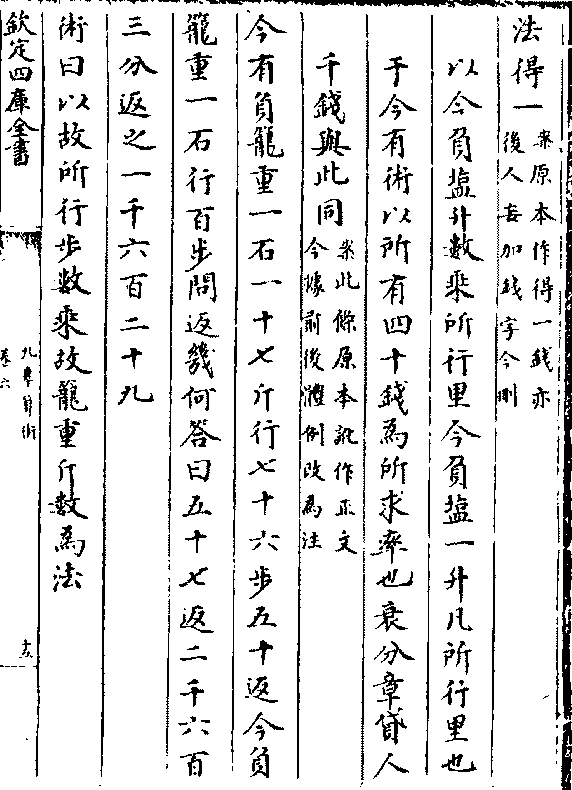 法得一案原本作得一錢亦
後人妄加錢字今刪
以今負塩升數乗所行里今負塩一升凡所行里也
于今有術以所有四十錢為所求率也衰分章貸人
千錢與此同案此條原本訛作正文
今據前後體例改為注
今有負籠重一石一十七斤行七十六步五十返今負
籠重一石行百步問返幾何答曰五十七返二千六百
三分返之一千六百二十九
術曰以故所行步數乗故籠重斤數為法
欽定四庫全書
九章算術
卷六
十五